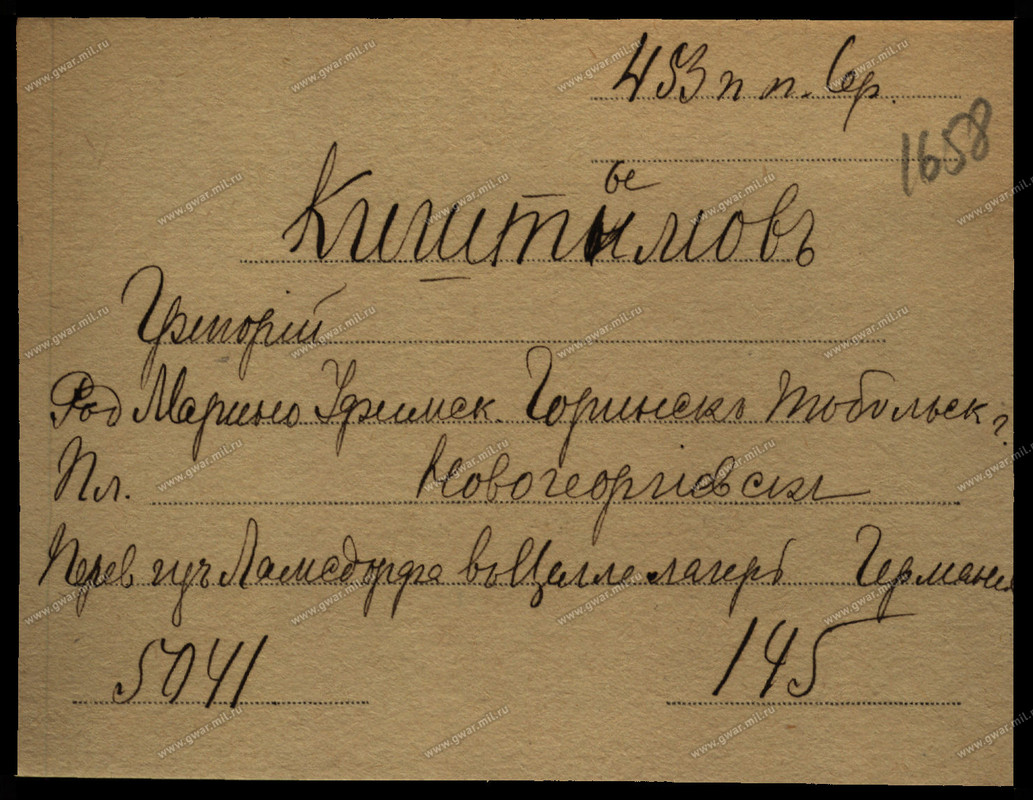 453 п п. 6 р.
1658
Киштымовъ
ые
Григорій
Род Марьино Уфимск. Горинскъ Тобольск г.
Пл. Новогеоргіевскъ
Перев изъ Ламсдорфа въ Целле лагерь Германія
5041 145